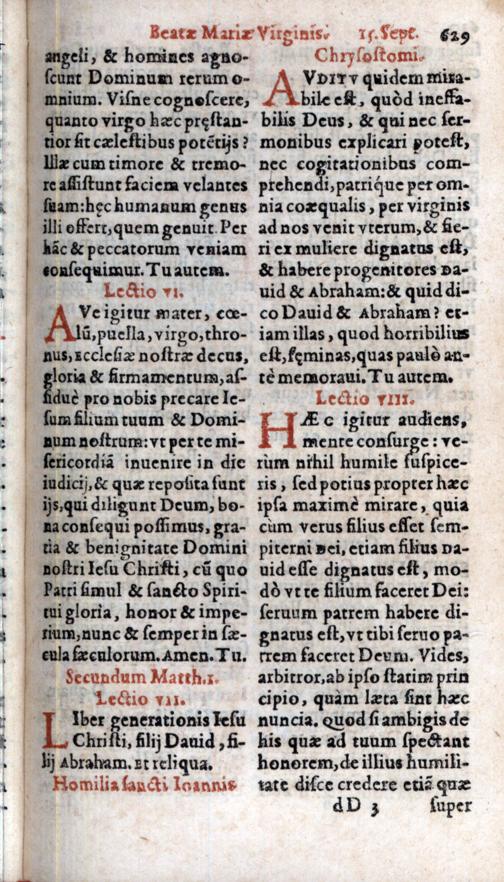 Beatæ Mariæ Virginis. 15. Sept. 629
angeli, & homines agno-
scunt Dominum rerum o-
mnium. Visne cognoscere,
quanto virgo hæc pręstan-
tior sit cælestibus potẽtijs?
Illæ cum timore & tremo-
re assistunt faciem velantes
suam: hęc humanum genus
illi offert, quem genuit. Per
hãc & peccatorum veniam
consequimur. Tu autem.
Lectio vi.
AVe igitur mater, cœ-
lũ, puella, virgo, thro-
nus, Ecclesiæ nostræ decus,
gloria & firmamentum, as-
siduè pro nobis precare Ie-
sum filium tuum & Domi-
num nostrum: vt per te mi-
sericordiã inuenire in die
iudicij, & quæ reposita sunt
ijs, qui diligunt Deum, bo-
na consequi possimus, gra-
tia & benignitate Domini
nostri Iesu Christi, cũ quo
Patri simul & sancto Spiri-
tui gloria, honor & impe-
rium, nunc & semper in sæ-
cula sæculorum. Amen. Tu.
Secundum Matth. 1.
Lectio vii.
LIber generationis Iesu
Christi, filij Dauid, fi-
lij Abraham. Et reliqua.
Homilia sancti Ioannis
Chrysostomi.
AVDITV quidem mira-
bile est, quòd ineffa-
bilis Deus, & qui nec ser-
monibus explicari potest,
nec cogitationibus com-
prehendi, patriq́ue per om-
nia coæqualis, per virginis
ad nos venit vterum, & fie-
ri ex muliere dignatus est,
& habere progenitores Da-
uid & Abraham: & quid di-
co Dauid & Abraham? et-
iam illas, quod horribilius
est, fęminas, quas paulò an-
tè memoraui. Tu autem.
Lectio viii.
HÆC igitur audiens,
mente consurge: ve-
rùm nihil humile suspice-
ris, sed potius propter hæc
ipsa maximè mirare, quia
cùm verus filius esset sem-
piterni Dei, etiam filius Da-
uid esse dignatus est, mo-
dò vt te filium faceret Dei:
seruum patrem habere di-
gnatus est, vt tibi seruo pa-
trem faceret Deum. Vides,
arbitror, ab ipso statim prin
cipio, quàm læta sint hæc
nuncia. Quod si ambigis de
his quæ ad tuum spectant
honorem, de illius humili-
tate disce credere etiã quæ
dD 3 super